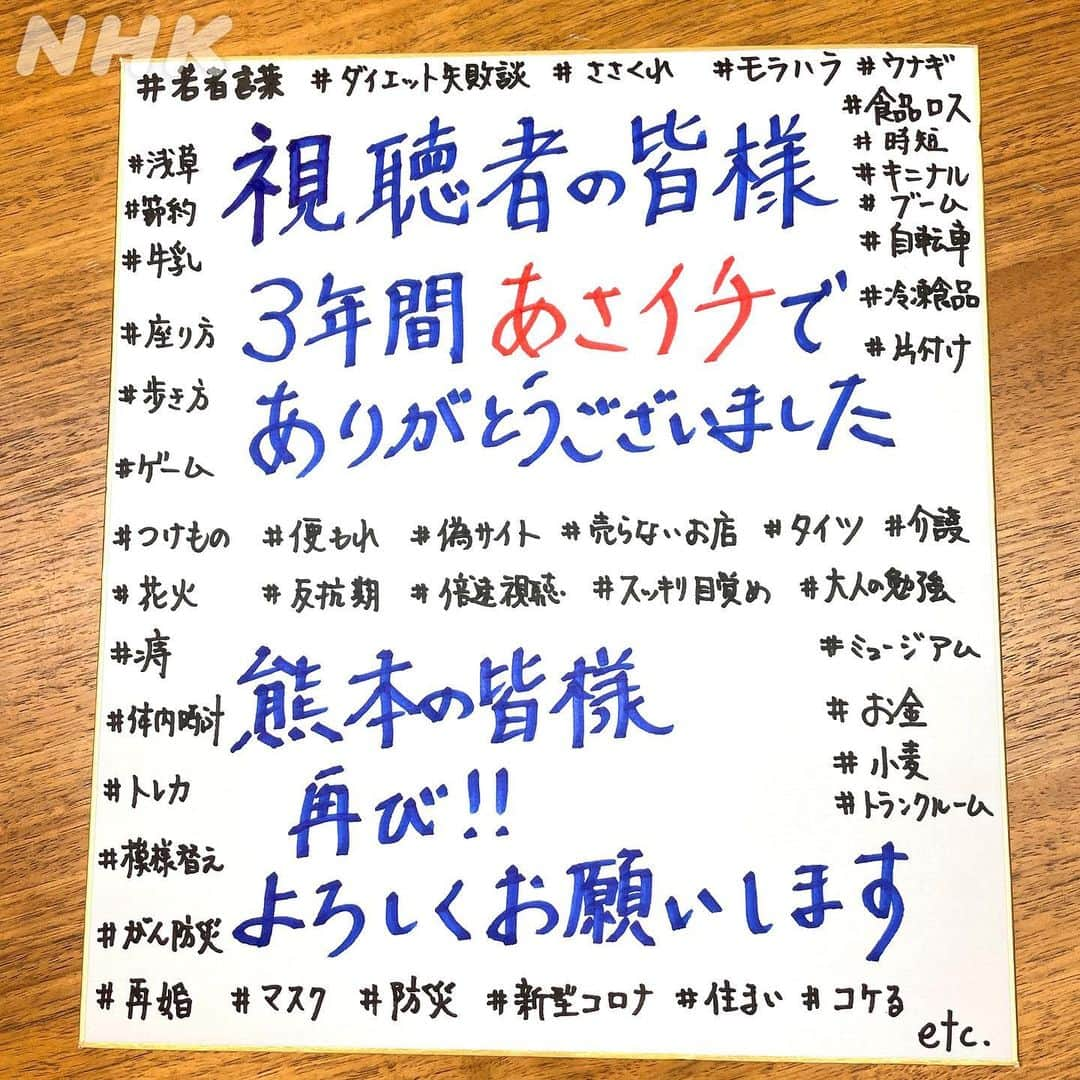 NHK
#若者言葉 #ダイエット失敗談 #ささくれ #モラハラ #ウナギ
#食品ロス
#時短
#キニナル
#ブーム
#自転車
#冷凍食品
#片付け
#浅草
#節約
#牛乳
#座り方
#歩き方
#ゲーム
視聴者の皆様
3年間あさイチで
ありがとうございました
#つけもの #便もれ #偽サイト #売らないお店 #タイツ #介護
#花火 #反抗期 #倍速視聴 #スッキリ目覚め #大人の勉強
#痔
#体内時計
#トレカ
#模様替え
#がん防災
熊本の皆様
再び!!
よろしくお願いします
#ミュージアム
#お金
#小麦
#トランクルーム
#再婚 #マスク #防災 #新型コロナ #住まい #コケる
etc.